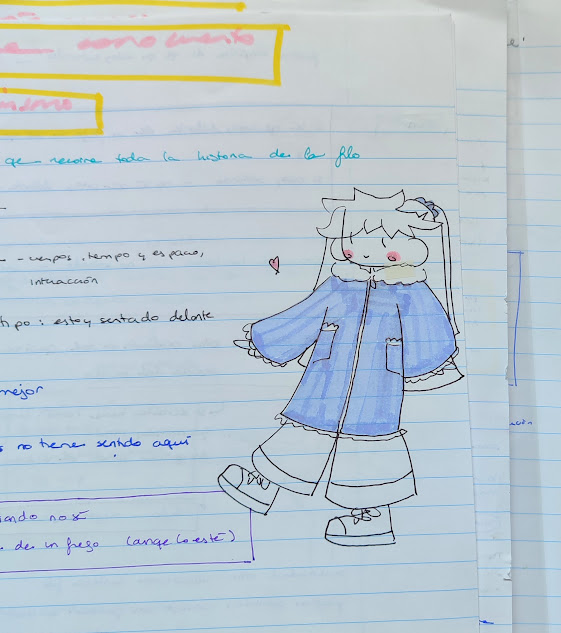 como cuento
que recorre toda la historia de la filo
- cuerpos, tiempo y espacio,
interacción
tipo: estoy sentado delante
mejor
no tiene sentido aquí
de un fuego (aunque lo esté)